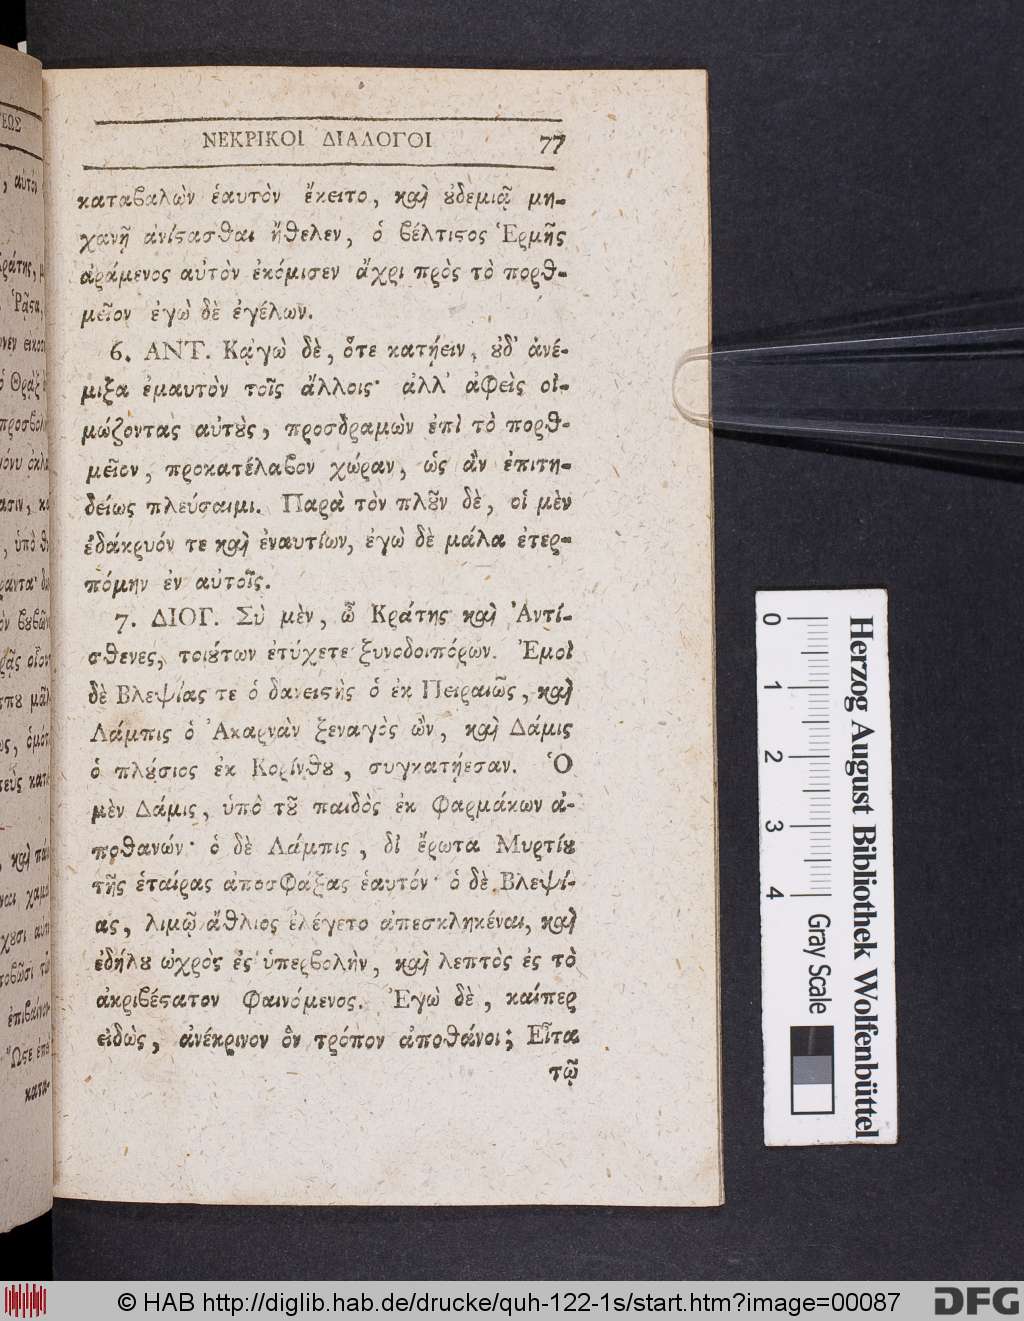 ΝΕΚΡΙΚΟΙ ΔΙΑΛΟΓΟΙ 77
καταβαλὼν ἑαυτὸν ἔκειτο, καὶ ȣ̓δεμιᾷ μη-
χανῇ ἀνίϛασθαι ἤθελεν, ὁ βέλτιϛος Ἑρμῆς
ἀράμενος αὐτὸν ἐκόμισεν ἄχρι πρὸς τὸ πορθ-
μεῖον ἐγὼ δὲ ἐγέλων.
6. ΑΝΤ. Κᾀγὼ δὲ, ὅτε κατῄειν, ȣ̓δ' ἀνέ-
μιξα ἐμαυτὸν τοῖς ἄλλοις· ἀλλ' ἀφεὶς οἰ-
μώζοντας αὐτȣ̀ς, προσδραμὼν ἐπὶ τὸ πορθ-
μεῖον, προκατέλαβον χώραν, ὡς ἂν ἐπιτη-
δείως πλεύσαιμι. Παρὰ τὸν πλȣ͂ν δὲ, οἱ μὲν
ἐδάκρυόν τε καὶ ἐναυτίων, ἐγὼ δὲ μάλα ἐτερ-
πόμην ἐν αὐτοῖς.
7. ΔΙΟΓ. Σὺ μὲν, ὦ Κράτης καὶ Ἀντί-
σθενες, τοιȣ́των ἐτύχετε ξυνοδοιπόρων. Ἐμοὶ
δὲ Βλεψίας τε ὁ δανειϛὴς ὁ ἐκ Πειραιῶς, καὶ
Λάμπις ὁ Ἀκαρνὰν ξεναγὸς ὢν, καὶ Δάμις
ὁ πλȣ́σιος ἐκ Κορίνθȣ, συγκατῄεσαν. Ὁ
μὲν Δάμις, ὑπὸ τȣ͂ παιδὸς ἐκ Φαρμάκων ἀ-
ποθανών· ὁ δὲ Λάμπις, δἰ ἔρωτα Μυρτίȣ
τῆς ἑταίρας ἀποσφάξας ἑαυτόν· ὁ δὲ Βλεψί-
ας, λιμῷ ἄθλιος ἐλέγετο ἀπεσκληκέναι, καὶ
ἐδήλȣ ὠχρὸς ἐς ὑπερβολὴν, καὶ λεπτὸς ἐς τὸ
ἀκριβέϛατον φαινόμενος. Ἐγὼ δὲ, καίπερ
εἰδὼς, ἀνέκρινον ὃν τρόπον ἀποθάνοι; Εἶτα
τῷ
0 1 2 3 4
Gray Scale
Herzog August Bibliothek Wolfenbüttel
© HAB http://diglib.hab.de/drucke/quh-122-1s/start.htm?image=00087
DFG